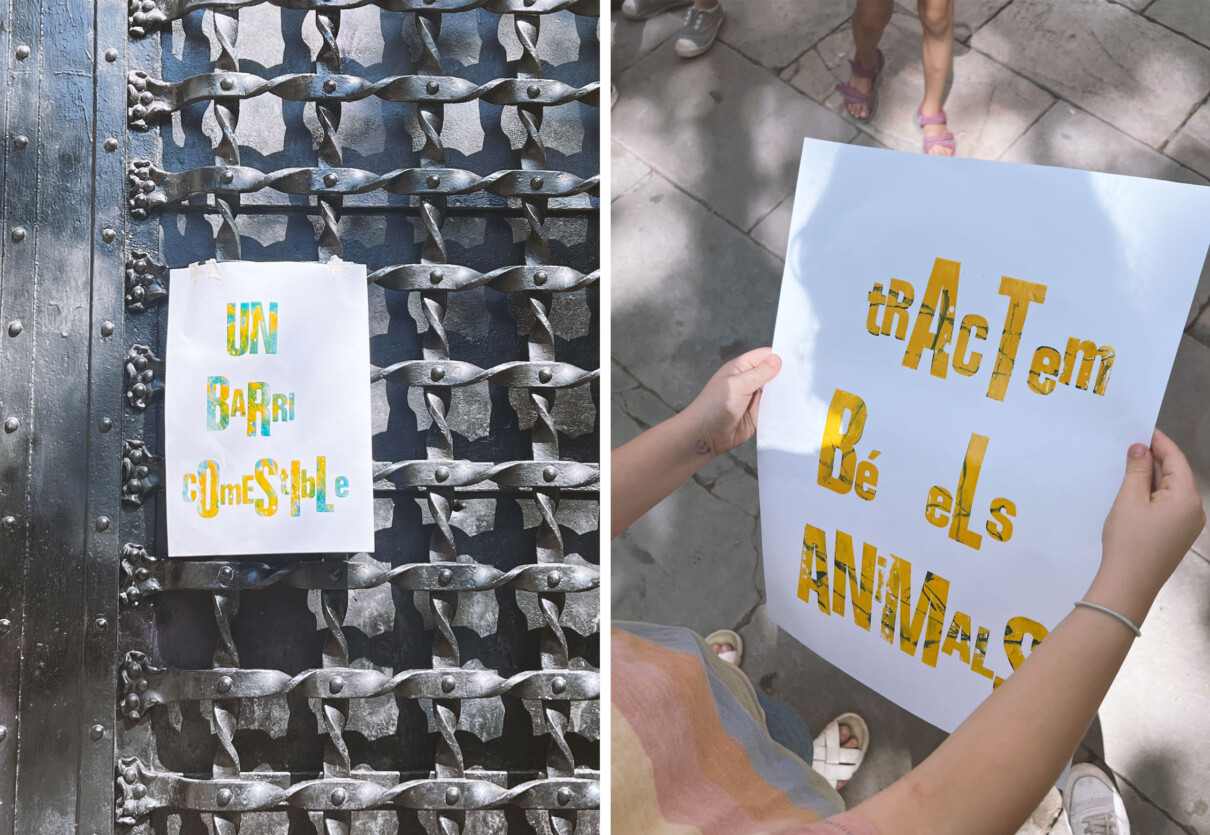 UN
BARRi
cOmEStIbLe
tRACTem
Bé eLs
ANiMALS